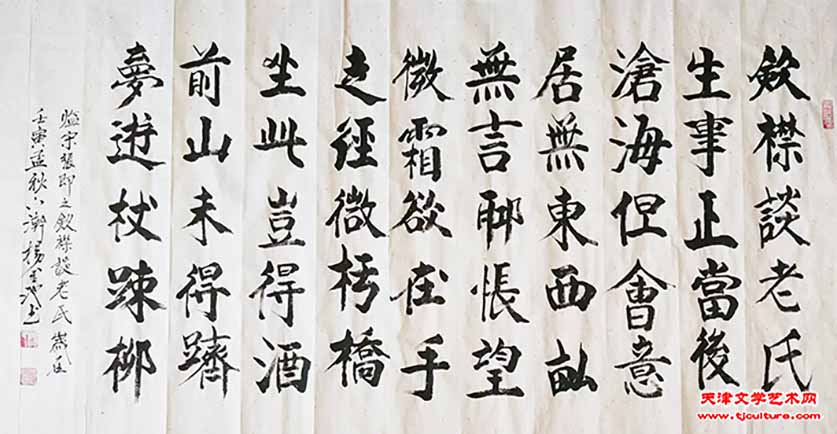 斂襟談老氏
生事正當後
滄海但會意
居無東西畝
無言聊悵望
微霜欲在手
之徑微枵橋
坐此豈得酒
前山未得躋
夢遊杖踈柳
臨宋張即之斂襟談老氏
壬寅孟秋 楊書
天津文学艺术网
www.tjculture.com